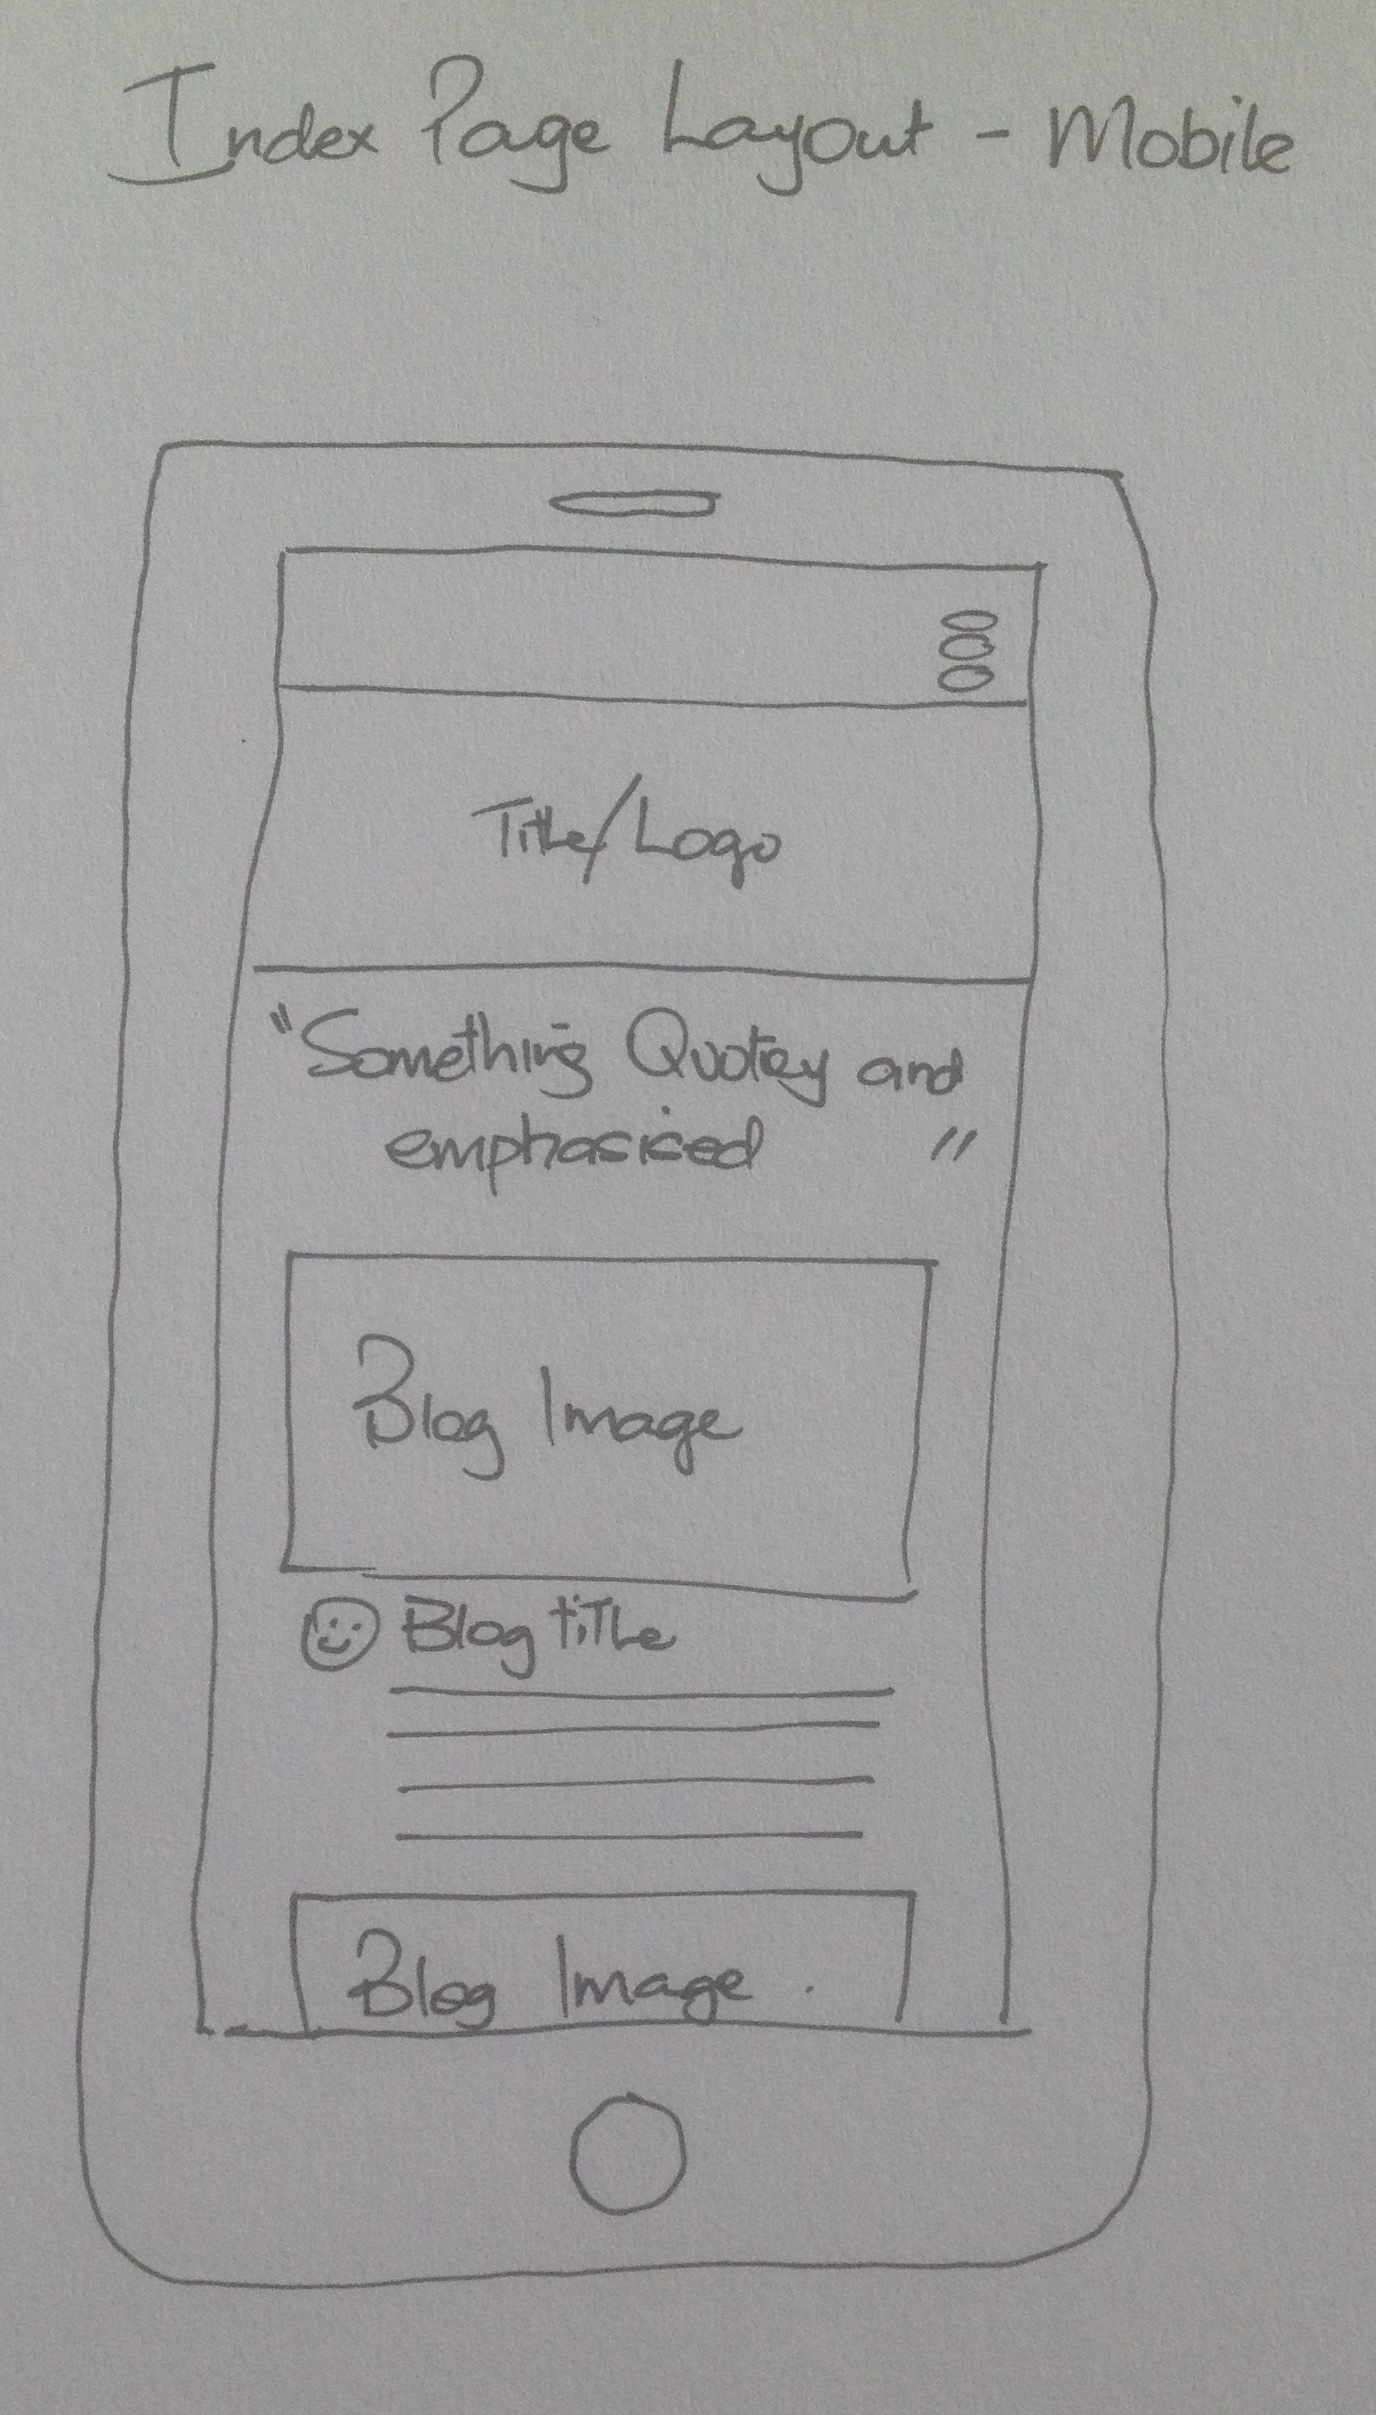 Index Page Layout - Mobile
Title/Logo
"Something Quotey and
emphasised "
Blog Image
Blog title
Blog Image .